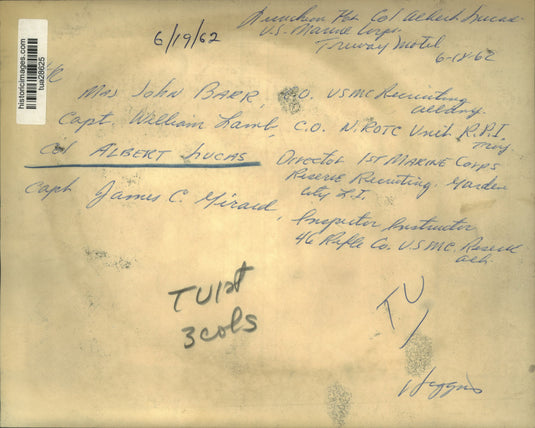 Luncheon For Col Albert Lucas
U.S. Marine Corps
Truway Motel
6-18-62
6/19/62
historicimages.com
tua28625
Maj John Barr, C.O. USMC Recruiting
Albany
Capt. William Lamb, C.O. N.ROTC Unit R.P.I.
Troy
Col ALBERT LUCAS Director 1ST MARINE CORPS
Reserve Recruiting Garden
City L.I.
Capt James C. Girard, Inspector Instructor
46 Rifle Co. U.S.M.C. Reserve
Alb.
TU 1st
3 cols
TU
/
Higgins